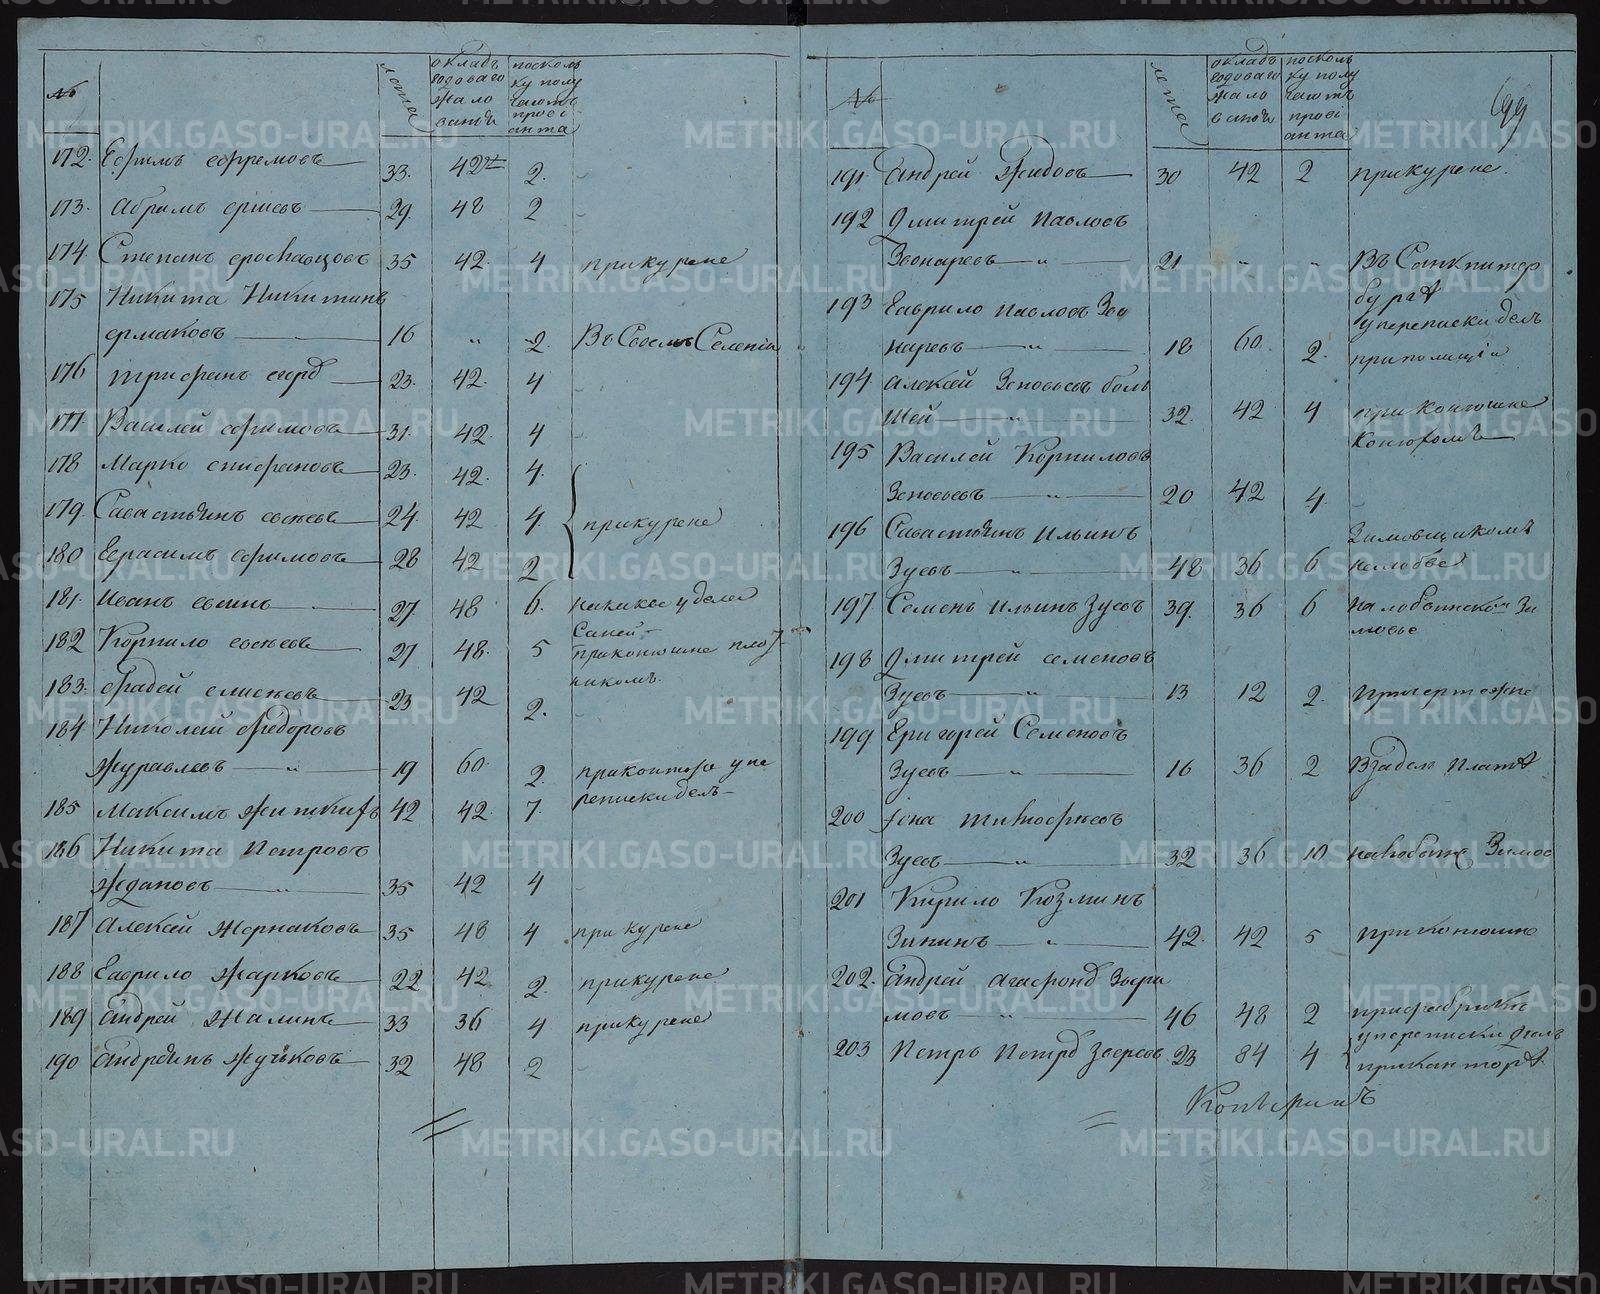 №
лета
окладъ
годоваго
жало
ванія
посколь
ку полу
чаютъ
прові
анта
172. Ефимъ ефремовъ 33. 42 2.
173. Абрамъ ершевъ 29. 48 2
174. Степанъ 35 42. 4 прикурене
175 Никита Никитинъ
ермаковъ 16 " 2. Въ Своемъ Селеніи
176 трифанъ 23. 42. 4
177. Василей ефимовъ 31. 42. 4
178 Марко епифановъ 23. 42. 4.
179. Савастьянъ евсѣевъ 24. 42 4.
прикурене
180 Герасимъ ефимовъ 28 42 2
181. Иванъ 27 48 6.
182 Корнило евсѣевъ 27 48. 5
приконюшне плот
никомъ
183. Фадей елисѣевъ 23 42 2.
184 Николай Федоровъ
журавлевъ " 19 60. 2. приконторе упе
реписки делъ
185 Максимъ 42 42. 7.
186 Никита Петровъ
ждановъ " 35 42 4
187 Алексей жернаковъ 35 48 4 прикурене
188 Гаврило жарковъ 22 42 2. прикурене
189 Андрей жалинъ 33 36 4 прикурене
190 Андреянъ жучковъ 32 48 2
№
лета
окладъ
годоваго
жало
ванія
посколь
ку полу
чаютъ
прові
анта
699
191. Андрей Жидовъ 30 42 2 прикурене.
192 Дмитрей Павловъ
Звонаревъ " 21 " " Въ Санкпитер
бургѣ
193 Гаврило Павловъ Зво
упереписки делъ
наревъ " 18 60. 2. при полиціи
194 Алексей Зеновьевъ боль
шей " 32. 42 4 приконюшне
Конюхомъ
195 Василей Корниловъ
Зеновьевъ " 20 42 4.
196 Савастьянъ Ильинъ
Зимовщикомъ
Зуевъ " 48 36 6 налобве
197 Семенъ Ильинъ Зуевъ 39. 36 6 на лобвинском Зи
мовье
198 Дмитрей семеновъ
Зуевъ " 13 12 2. Причертежне
199 Григорей Семеновъ
Зуевъ " 16 36 2
200 Іона тимофѣевъ
Зуевъ " 32 36 10
201 Кирило Козминъ
Зининъ " 42. 42 5 приконюшне
202. Андрей Агафонов Звери
мовъ " 46 48 2 прифабрикѣ
упереписки делъ
203 Петръ Петров Зверевъ 23 84 4 приканторѣ.
METRIKI.GASO-URAL.RU